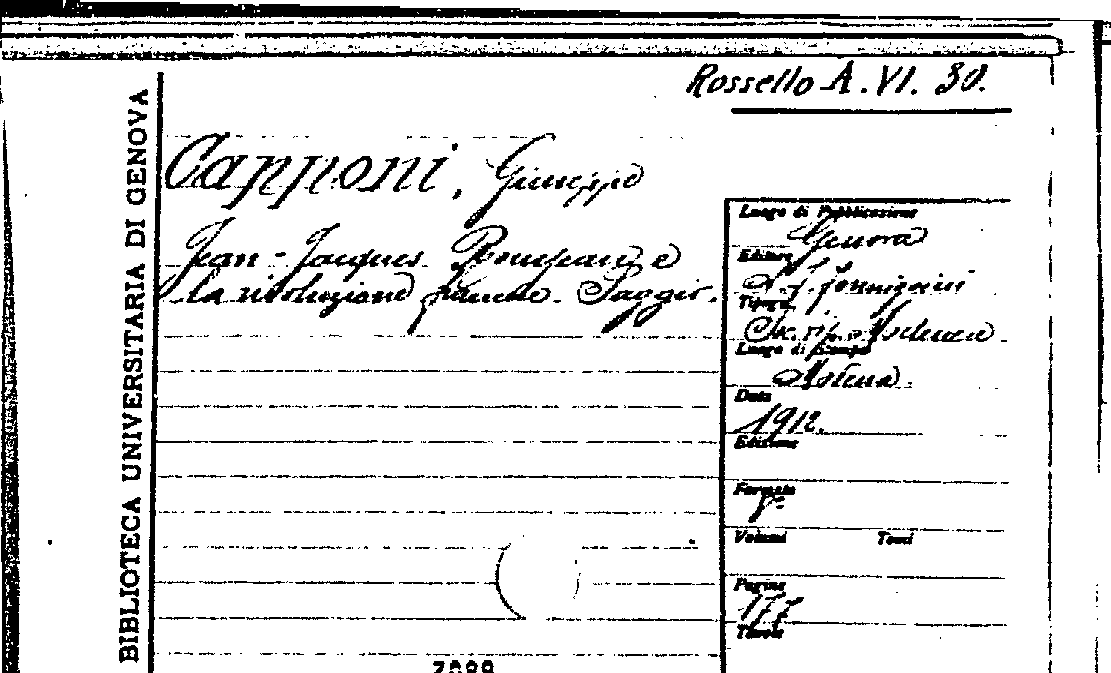 Rossello A.VI.30.
BIBLIOTECA UNIVERSITARIA DI GENOVA
Capponi, Giuseppe
Jean-Jacques Rousseau e
la rivoluzione francese. Saggio.
Luogo di Pubblicazione
Genova
Editore
A. F. Formiggini
Tipogr.
Luogo di Stampa
Data
1912.
Edizione
Formato
8°
Volumi Tomi
Pagine
177
Tavole